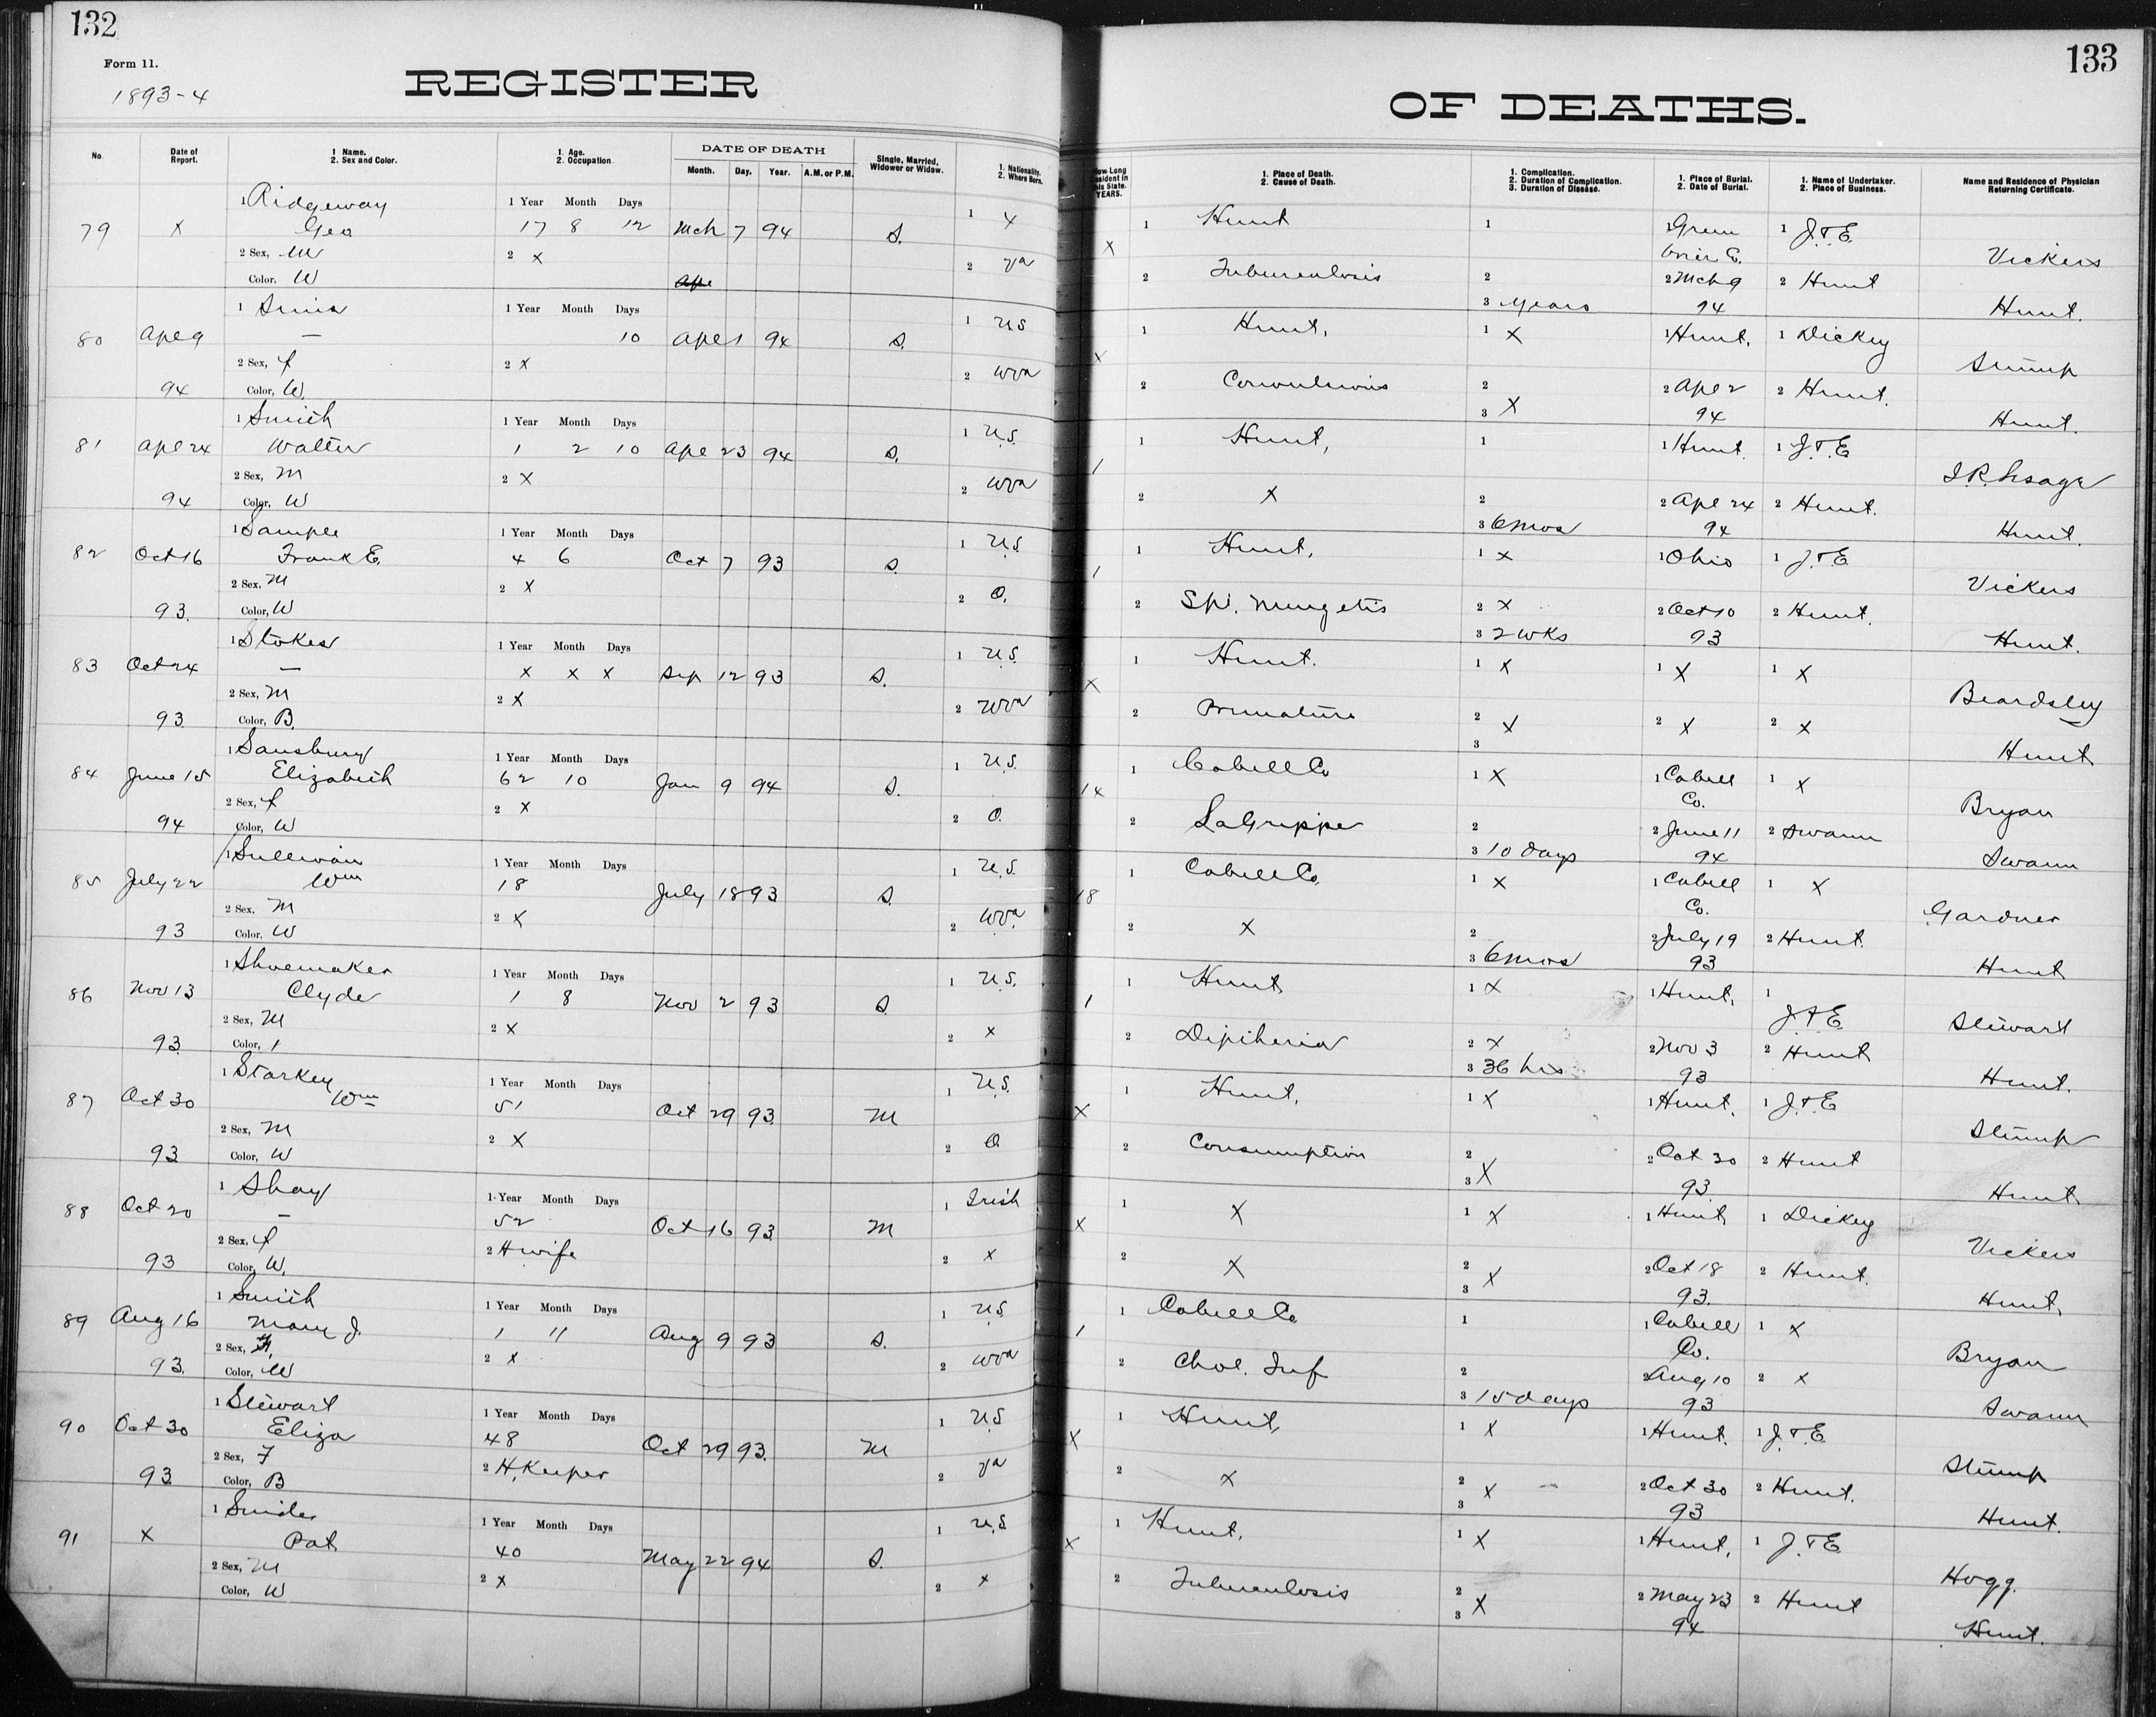 132
Form 11.
1893-4
REGISTER
No.
Date of Report.
1 Name. 2. Sex and Color.
1. Age. 2. Occupation.
DATE OF DEATH
Month. Day. Year. A.M. or P.M.
Single, Married, Widower or Widow.
1. Nationality. 2. Where Born.
79 x 1 Ridgeway Geo
1 Year Month Days
17 8 12 Mch 7 94 S. 1 x
2 Sex, M
Color, W
2 x
2 Va
Ape
80 Ape 9 94 1 —
1 Year Month Days
10 Ape 1 94 S. 1 US
2 Sex, f
Color, W.
2 x
2 Wva
81 Ape 24 94 1 Smith Walter
1 Year Month Days
1 2 10 Ape 23 94 S. 1 U.S.
2 Sex, M
Color, W
2 x
2 Wva
82 Oct 16 93. 1 Sample Frank E.
1 Year Month Days
4 6 Oct 7 93 S. 1 U.S.
2 Sex, M
Color, W
2 x
2 O.
83 Oct 24 93 1 Stokes —
1 Year Month Days
x x x Sep 12 93 S. 1 U.S.
2 Sex, M
Color, B.
2 x
2 Wva
84 June 15 94 1 Sansbury Elizabeth
1 Year Month Days
62 10 Jan 9 94 S. 1 U.S.
2 Sex, f
Color, W
2 x
2 O.
85 July 22 93 1 Sullivan Wm
1 Year Month Days
18 July 18 93 S. 1 U.S.
2 Sex, M
Color, W
2 x
2 Wva.
86 Nov 13 93. 1 Shoemaker Clyde
1 Year Month Days
1 8 Nov 2 93 S. 1 U.S.
2 Sex, M
Color, 1
2 x
2 x
87 Oct 30 93 1 Starkey Wm
1 Year Month Days
51 Oct 29 93. M 1 U.S.
2 Sex, M
Color, W
2 x
2 O.
88 Oct 20 93 1 Shay —
1 Year Month Days
52 Oct 16 93. M 1 Irish
2 Sex, f
Color, W.
2 H wife
2 x
89 Aug 16 93. 1 Smith Mary J.
1 Year Month Days
1 11 Aug 9 93 S. 1 U.S.
2 Sex, F.
Color, W
2 x
2 Wva
90 Oct 30 93. 1 Stewart Eliza
1 Year Month Days
48 Oct 29 93. M 1 U.S.
2 Sex, F
Color, B
2 H. Keeper
2 Va
91 x 1 Pat
1 Year Month Days
40 May 22 94 S. 1 U.S.
2 Sex, M
Color, W
2 x
2 x
133
OF DEATHS.
How Long Resident in this State. YEARS.
1. Place of Death. 2. Cause of Death.
1. Complication. 2. Duration of Complication. 3. Duration of Disease.
1. Place of Burial. 2. Date of Burial.
1. Name of Undertaker. 2. Place of Business.
Name and Residence of Physician Returning Certificate.
x 1 Hunt 1 1 Green brier C. 1 J. & E. Vickers
2 Tuberculosis 2 3 years 2 Mch 9 94 2 Hunt Hunt.
x 1 Hunt, 1 x 1 Hunt, 1 Dickey Stump
2 Convulsions 2 3 x 2 Ape 2 94 2 Hunt. Hunt.
1 1 Hunt, 1 1 Hunt. 1 J. & E
2 x 2 3 6 mos 2 Ape 24 94 2 Hunt. Hunt.
1 1 Hunt, 1 x 1 Ohio 1 J. & E Vickers
2 Spi. Mungetis 2 x 3 2 wks 2 Oct 10 93 2 Hunt. Hunt.
x 1 Hunt. 1 x 1 x 1 x Beardsley
2 Premature 2 x 3 2 x 2 x Hunt
14 1 Cabell Co 1 x 1 Cabell Co. 1 x Bryan
2 LaGrippe 2 3 10 days 2 June 11 94 2 Swann Swann
18 1 Cabell Co. 1 x 1 Cabell Co. 1 x Gardner
2 x 2 3 6 mos 2 July 19 93 2 Hunt. Hunt
1 1 Hunt 1 x 1 Hunt, 1 J. & E Stewart
2 Diptheria 2 x 3 36 hrs 2 Nov 3 93 2 Hunt Hunt.
x 1 Hunt, 1 x 1 Hunt, 1 J. & E Stump
2 Consumption 2 3 x 2 Oct 30 93. 2 Hunt Hunt
x 1 x 1 x 1 Hunt 1 Dickey Vickers
2 x 2 3 x 2 Oct 18 93. 2 Hunt. Hunt,
1 1 Cabell Co 1 1 Cabell Co. 1 x Bryan
2 Chol. Inf 2 3 15 days 2 Aug 10 93 2 x Swann
x 1 Hunt, 1 x 1 Hunt. 1 J. & E. Stump
2 x 2 x 3 2 Oct 30 93 2 Hunt. Hunt.
x 1 Hunt, 1 x 1 Hunt, 1 J. & E Hogg.
2 Tuberculosis 2 3 x 2 May 23 94 2 Hunt Hunt.